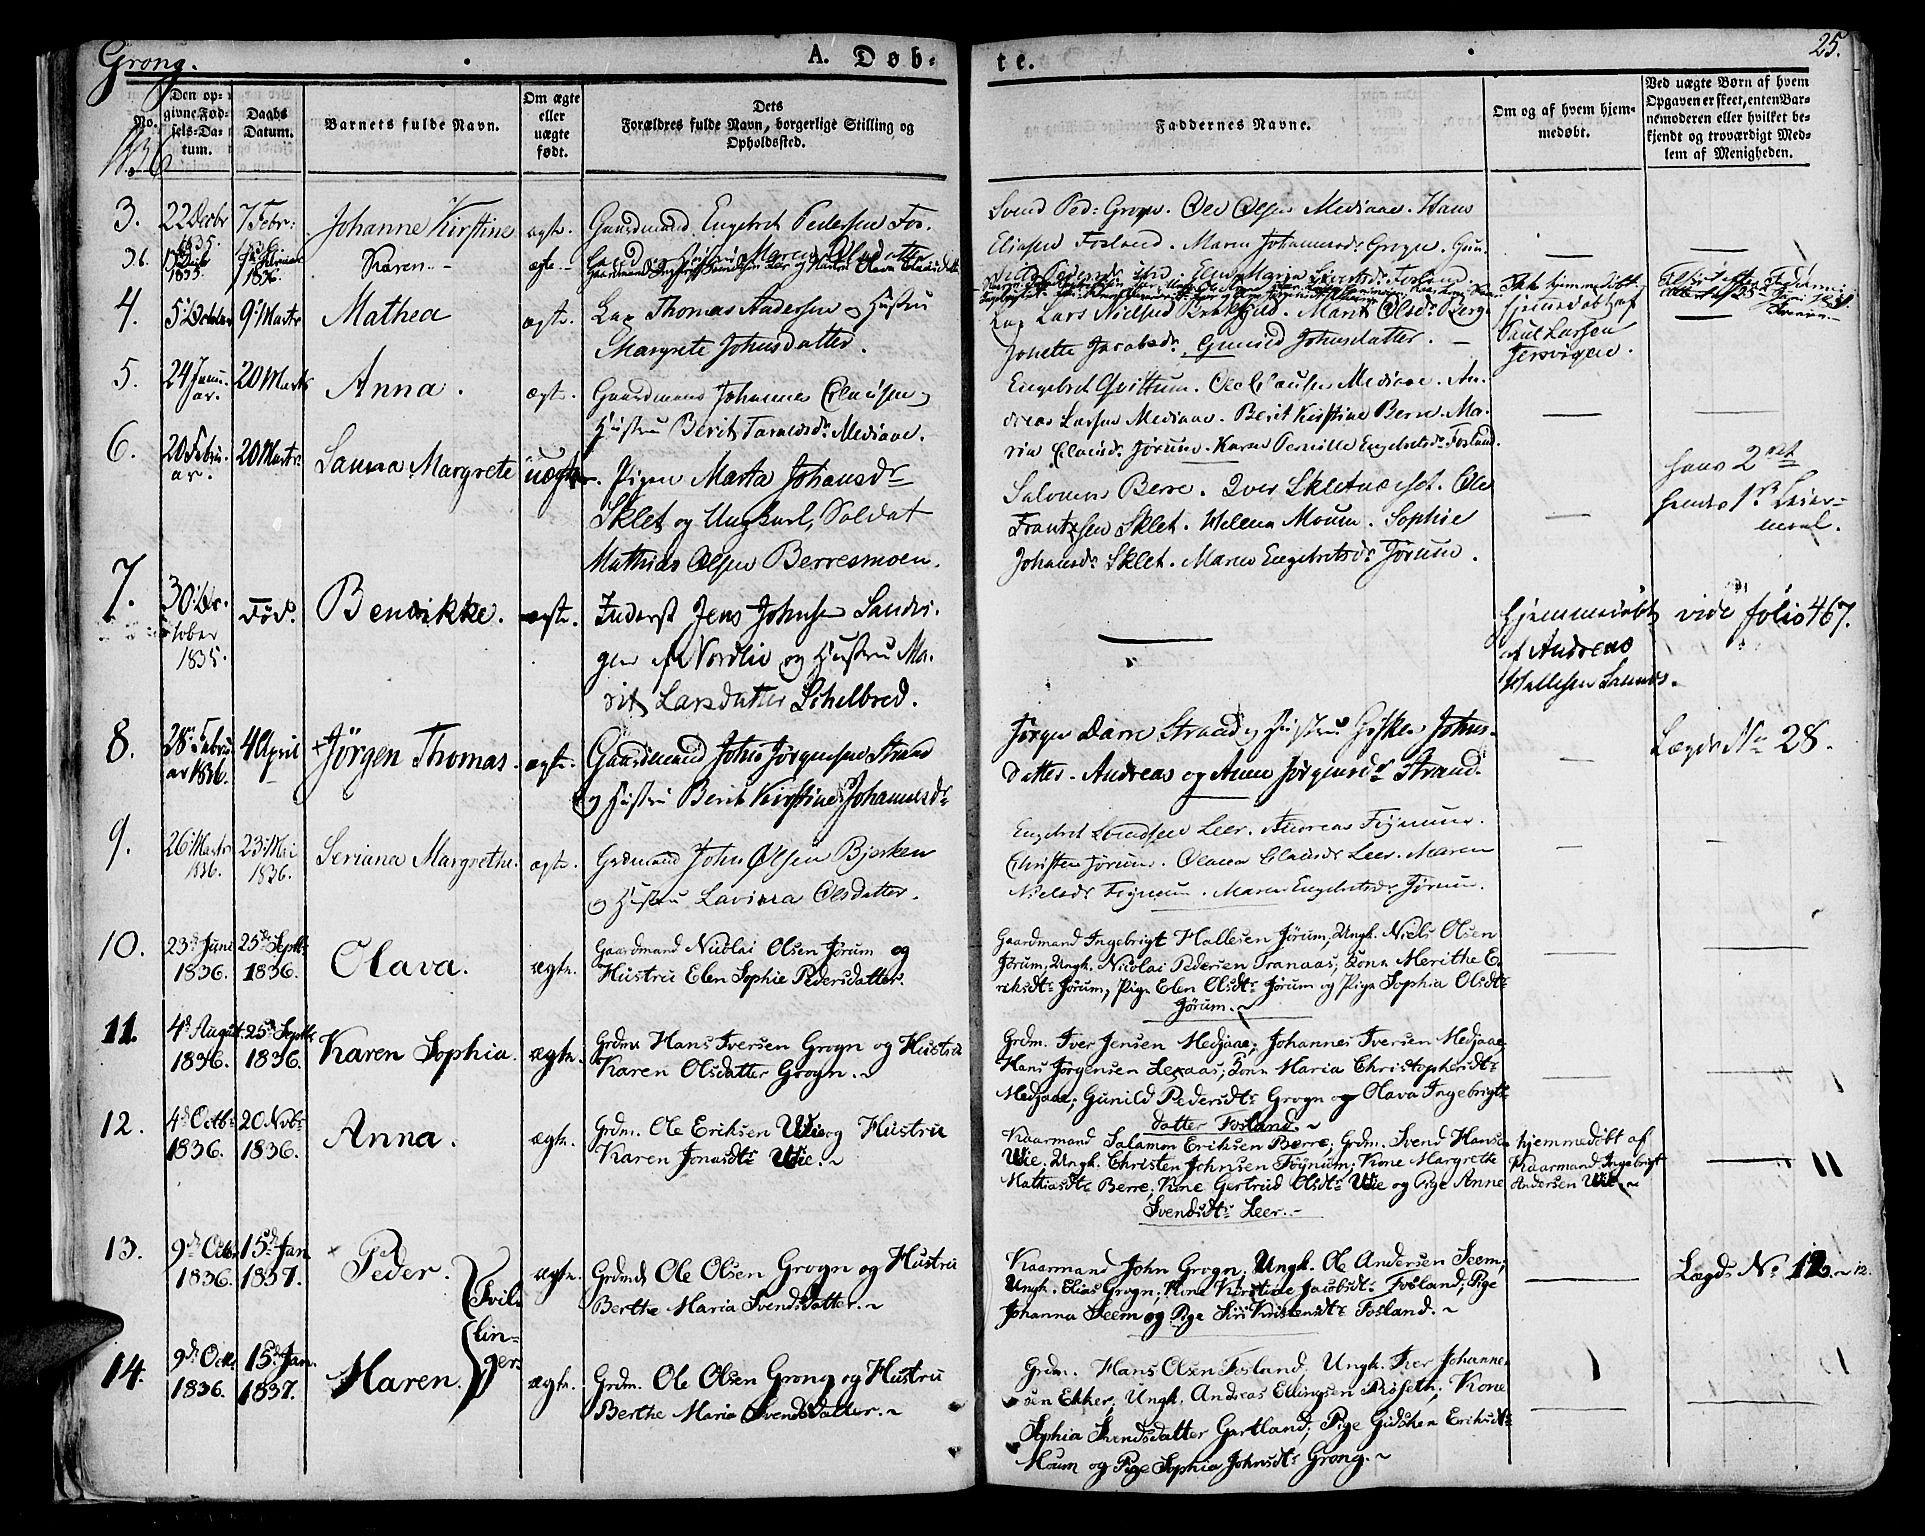 Grong.
A. Døb-
te.
25.
1836
No.
Den op-
givne Fød-
sels-Da-
tum.
Daabs
Datum.
Barnets fulde Navn.
Om ægte
eller
uægte
født.
Dets
Forældres fulde Navn, borgerlige Stilling og
Opholdssted.
Faddernes Navne.
Om og af hvem hjem-
medøbt.
Ved uægte Børn af hvem
Opgaven er skeet, enten Bar-
nemoderen eller hvilket be-
kjendt og troværdigt Med-
lem af Menigheden.
3.
22 Decbr
1835.
7 Febr:
1836.
Johanne Kirstine
ægte.
Gaardmand Engebret Pedersen Fos-
land og Hustru Maren Olsdatter
Svend Ped: Grogn. Ole Olsen Mediaae. Hans
Eliasen Fosland. Maren Johannesdr Grogn. Gun-
3b.
1835
1836
Karen.
ægte.
4.
5 October
9 Martz
Mathea
ægte.
Lap Thomas Andersen og Hustru
Margrete Johnsdatter.
Lap Lars Nielsen Marit Olsdr Berg.
Jonetta Jacobsdr. Gunild Johnsdatter.
Ikke hjemmedøbt
hjemmedøbt af
Paul Larsen
Tersvigen.
5.
24 Janu-
ar.
20 Martz
Anna.
ægte.
Gaardmand Johannes Clausen og
Hustru Berit Taraldsdr Mediaae.
Engebret Qvittum. Ole Clausen Mediaae. An-
dreas Larsen Mediaae. Berit Kirstine Berre. Ma-
ria Clausdr Jørum. Karen Pernille Engebretsdr Fosland.
6.
20 Febru-
ar.
20 Martz
Laura Margrete
uægte.
Pigen Marta Johansdr
Sklet og Ungkarl, Soldat
Mathias Olsen Berresmoen.
Salomon Berre. Iver Skletnæset. Ole
Frantzen Sklet. Helena Moum. Sophie
Johansdr Sklet. Maren Engebretsdr Jørum.
hans 2det
hendes 1ste Leier-
maal.
7.
30 Oc-
tober
1835.
Død.
Bendikke.
ægte.
Inderst Jens Johnsen Sandvi-
gen af Nordlie og Hustru Ma-
rit Larsdatter Schelbred.
Hjemmedøbt
af Andreas
Hallesen Sannes.
vide folio 467.
8.
28 Febru-
ar 1836.
4 April
Jørgen Thomas.
ægte.
Gaardmand John Jørgensen Strand
og Hustru Berit Kirstine Johannesdr
Jørgen Strand og Hustru Giøsken Johns-
datter. Andreas og Anne Jørgensdr Strand.
Lægds No 28.
9.
26 Martz
1836.
23 Mai
1836.
Seriana Margrethe.
ægte.
Grdmand John Olsen Bjerken
og Hustru Lavina Olsdatter.
Engebret Svendsen Leer. Andreas Fignum.
Christen Jørum. Olava Clausdr Leer. Maren
Nielsdr Fignum. Maren Engebretsdr Jørum.
10.
23 Juni
1836.
25de Septbr
1836.
Olava.
ægte.
Gaardmand Nicolai Olsen Jørum og
Hustru Elen Sophie Pedersdatter.
Gaardmand Ingebrigt Hallesen Jørum, Ungk. Niels Olsen
Jørum, Ungk. Nicolai Pedersen Tranaas, Kone Merithe E-
riksdtr Jørum, Pige Elen Olsdtr Jørum og Pige Sophia Olsdtr
Jørum.~
11.
4d August
1836.
25de Septbr
1836.
Karen Sophia.
ægte.
Grdm. Hans Iversen Grogn og Hustru
Karen Olsdatter Grogn.~
Grdm. Iver Jensen Medjaae; Johannes Iversen Medjaae,
Hans Jørgensen Lexaas; Kone Maria Christophersdtr
Medjaae; Gunild Pedersdtr Grogn og Olava Ingebrigts-
datter Fosland.~
12.
4d Octbr
1836.
20 Nvbr
1836.
Anna.
ægte.
Grdm. Ole Eriksen Wie og Hustru
Karen Jonasdtr Wie.~
Kaarmand Salamon Eriksen Berre, Grdm. Svend Hansen
Wie. Ungk. Christen Johnsen Føynum; Kone Margrethe
Mathiasdtr Berre; Kone Gertrud Olsdtr Wie og Pige Anne
Svendsdtr Leer.~
hjemmedøbt af
Kaarmand Ingebrigt
Andersen Wie.~
13.
9d Octbr
1836.
15d Jan.
1837.
Peder.
Tvil-
lin-
ger.
ægte.
Grdmd Ole Olsen Grogn og Hustru
Berthe Maria Svendsdatter.~
Kaarmand John Grogn, Ungk. Ole Andersen Seem;
Ungk. Elias Grogn; Kone Kirstine Jacobsdtr Fosland; Pige
Johanna Seem og Pige Siri Kristensdtr Fosland.~
Lægds No 12.~ 12.
14.
9d Octb
1836.
15d Jan.
1837.
Maren.
ægte.
Grdm. Ole Olsen Grong og Hustru
Berthe Maria Svendsdatter.~
Grdm. Hans Olsen Fosland, Ungk. Iver Johanne-
sen Ekker; Ungk. Andreas Ellingsen Rosseth; Kone
Sophia Svendsdatter Gartland; Pige Gidsken Eriksdtr
Moum og Pige Sophia Johnsdtr Grong.~